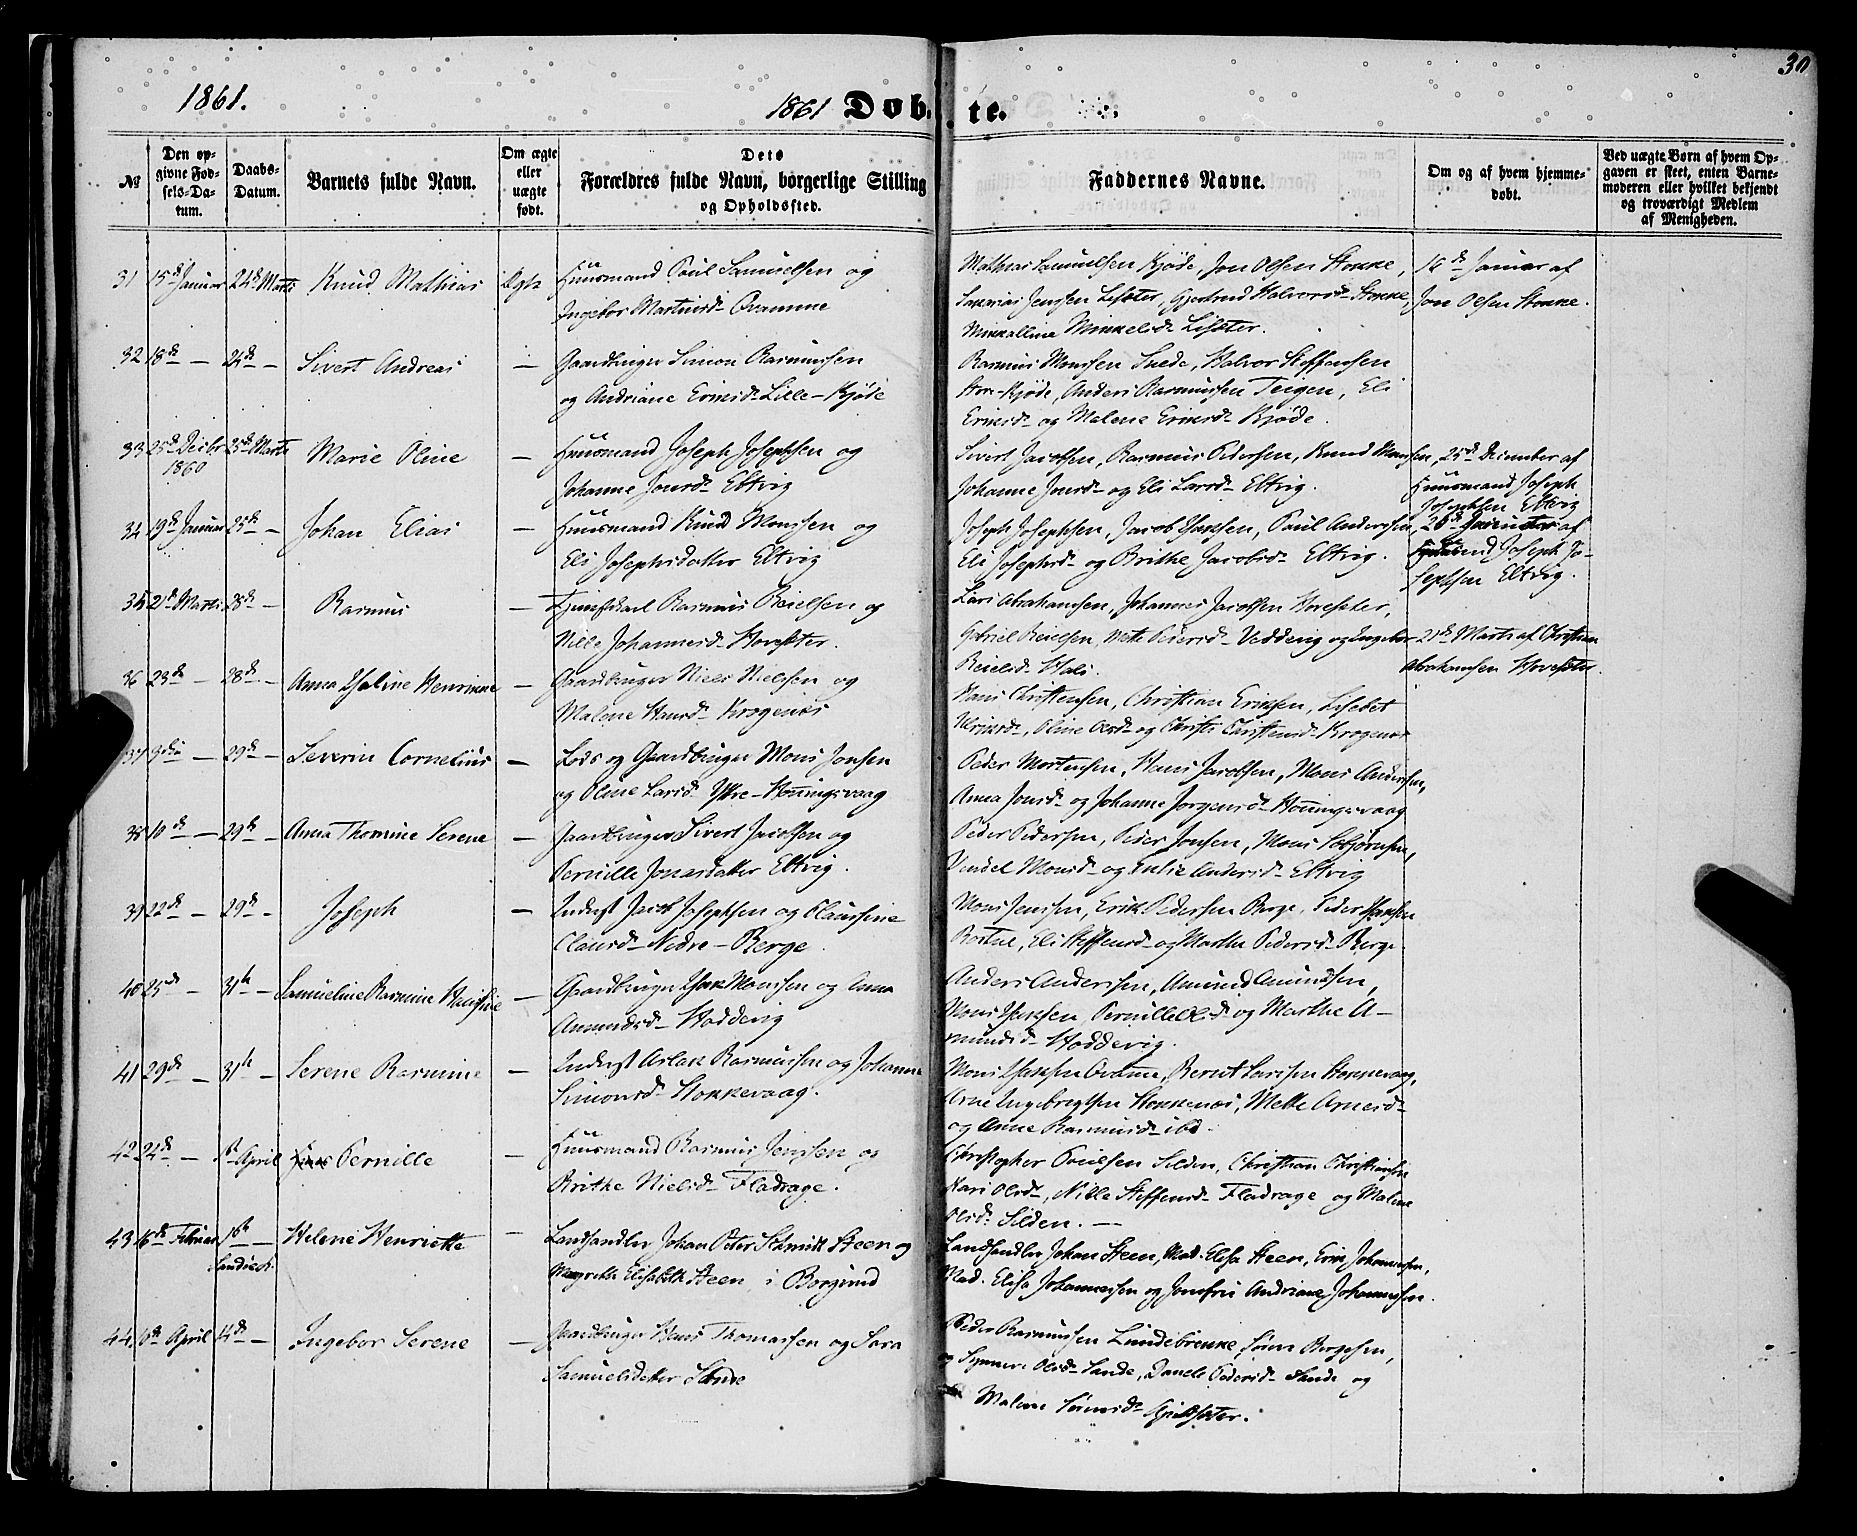 30
1861.
1861 Døb. te.
№
Den op-
givne Fød-
sels-Da-
tum.
Daabs-
Datum.
Barnets fulde Navn.
Om ægte
eller
uægte
født.
Dets
Forældres fulde Navn, borgerlige Stilling
og Opholdssted.
Faddernes Navne.
Om og af hvem hjemme-
døbt.
Ved uægte Børn af hvem Op-
gaven er skeet, enten Barne-
moderen eller hvilket bekjendt
og troværdigt Medlem
af Menigheden.
31 15de Januar 24de Marts Knud Mathias Ægte Huusmand Poul Samuelsen og
Ingebor Martinsd. Qvamme
Mathias Samuelsen Kjøde, Jon Olsen Stokke,
Zakarias Jensen Lisæter, Gjertrud Halvorsd. Stokke,
Mikkalline Mikkelsd. Lisæter.
16de Januar af
Jon Olsen Stokke.
32 18de — 24de — Sivert Andreas — Gaardbruger Simon Rasmussen
og Andriane Eriksd. Lille-Kjøde
Rasmus Monssen Snede, Halvor Steffensen
Store-Kjøde, Anders Rasmussen Teigen, Eli
Eriksd. og Malene Eriksd. Kjøde.
33 25de Decbr 1860 25de Marts Marie Oline — Huusmand Joseph Josephsen og
Johanne Jonsd. Eltvig
Sivert Jacobsen, Rasmus Pedersen, Knud Monsen,
Johanne Jonsd. og Eli Larsd. Eltvig.
25de December af
Huusmand Joseph
Josephsen Eltvig
34 19de Januar 25de — Johan Elias — Huusmand Knud Monssen og
Eli Josephsdatter Eltvig
Joseph Josephsen, Jacob Isaksen, Poul Andersen,
Eli Josephsd. og Brithe Jacobsd. Eltvig.
20de Januar af
Huusmand Joseph Jo-
sephsen Eltvig.
35 21de Marts 28de — Rasmus — Rasmus Reielsen og
Nille Johannesd. Hovesæter.
Lars Abrahamsen, Johannes Jacobsen Hovesæter,
Gabriel Reielsen, Mette Pedersd. Vedderig og Ingebor
Reielsd. Hali.
21de Marts af Christian
Abrahamsen Hovesæter.
36 23de — 28de — Anna Isaline Henrikke — Gaardbruger Niels Nielsen og
Malene Hansd. Krogenes
Hans Christensen, Christian Eriksen, Lisebet
Ulriksd., Oline Olsd. og Christi Christensd. Krogenes
37 — 29de — Severin Cornelius — Lods og Gaardbruger Mons Jonsen
og Oline Larsd. Ytre-Honingsvaag
Peder Mortensen, Hans Jacobsen, Mons Andersen,
Anna Jonsd. og Johanne Jørgensd. Honingsvaag
38 10de — 29de — Anna Thomine Serene — Gaardbruger Sivert Jacobsen og
Pernille Jonasdatter Eltvig.
Peder Pedersen, Peder Jonsen, Mons Asbjørnsen,
Vendel Monsd. og Julie Andersd. Eltvig
39 22de — 29de — Joseph — Inderst Jacob Josephsen og Claussine
Clausd. Nedre-Berge.
Mons Jensen, Erik Pedersen Berge, Peder Isaksen
Eli Steffensd. og Marthe Pedersd. Berge
40 25de — 31te — Samueline Rasmine Hansine — Gaardbruger Isak Monssen og Anna
Amundsd. Hoddevig
Anders Anderssen, Amund Amundsen,
Mons Isaksen, Pernille Olsd. og Marthe A-
mundsd. Hoddevig.
41 29de — 31te — Serene Rasmine — Inderst Aslak Rasmussen og Johanne
Simonsd. Stokkevaag.
Mons Isaksen Qvame, Bernt Larssen Stokkevaag,
Arne Ingebregtsen Stokkenes, Mette Arnesd.
og Anne Rasmusd. ibd.
42 24de — 1ste April Pernille Huusmand Rasmus Jenssen og
Brithe Nielsd. Fladrage.
Christopher Poulsen Silden, Christian Christiansen
Kari Olsd., Nille Steffensd. Fladrage og Malene
Olsd. Silden. —
43 16de Februar 1ste — Helene Henriette — Landhandler Johan Peter Schmidt Steen og
Magrethe Elisabeth Steen i Borgund
Landhandler Johan Steen, Mad. Elisa Steen, Erik Johannessen,
Mad. Elisa Johannessen og Jomfru Andriane Johannessen.
44. 10de April 14de — Ingebor Serene — Gaardbruger Hans Thomassen og Sara
Samuelsdatter Sande
Peder Rasmussen Lundebrekke, Søren Børgesen,
og Synneve Olsd. Sande, Danele Pedersd. Sande og
Malene Sørensd. Gjeitsæter.